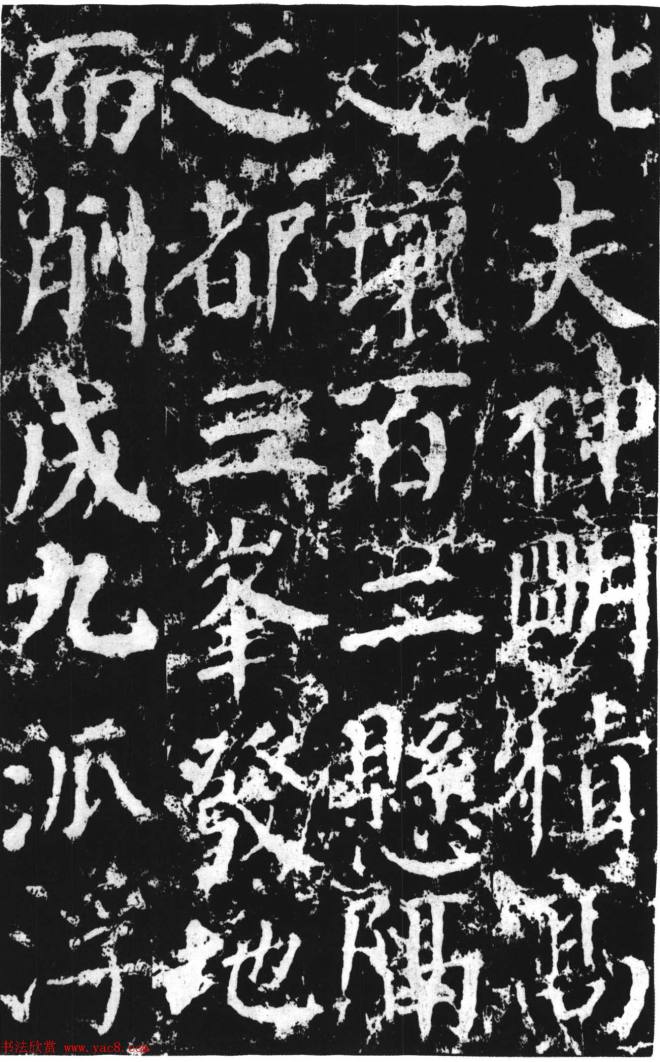 比夫神明積高
之壤百二懸隔
之都三峯發地
而削成九派浮
书法欣赏 www.yac8.com